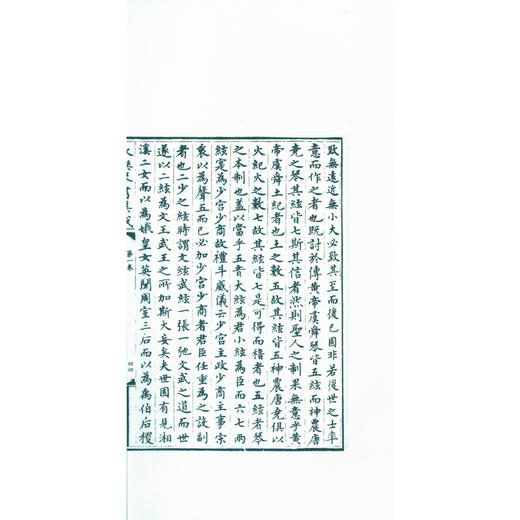 致無遠近無小大必致其至而後已固非若後世之士率
意而作之者也既討於傳黃帝虞舜琴皆五絃而神農唐
堯之琴其絃皆七斯其信者然則聖人之制果無意乎黃
帝虞舜土紀者也土之數五故其絃皆五神農唐堯俱以
火紀火之數七故其絃皆七是可得而稽者也五絃者琴
之本制也蓋以當乎五音大絃為君小絃為臣而六七兩
絃寔為少宮少商故禮斗威儀云少宮主政少商主事宋
衷以為聲五而已必加少宮少商者君臣任重為之設副
者也二少之絃時謂文絃武絃一張一弛文武之道而世
遂以二絃為文王武王之所加斯大妄矣夫世固有見湘
濱二女而以為娥皇女英聞周室三后而以為禹伯后稷
第一卷
四四